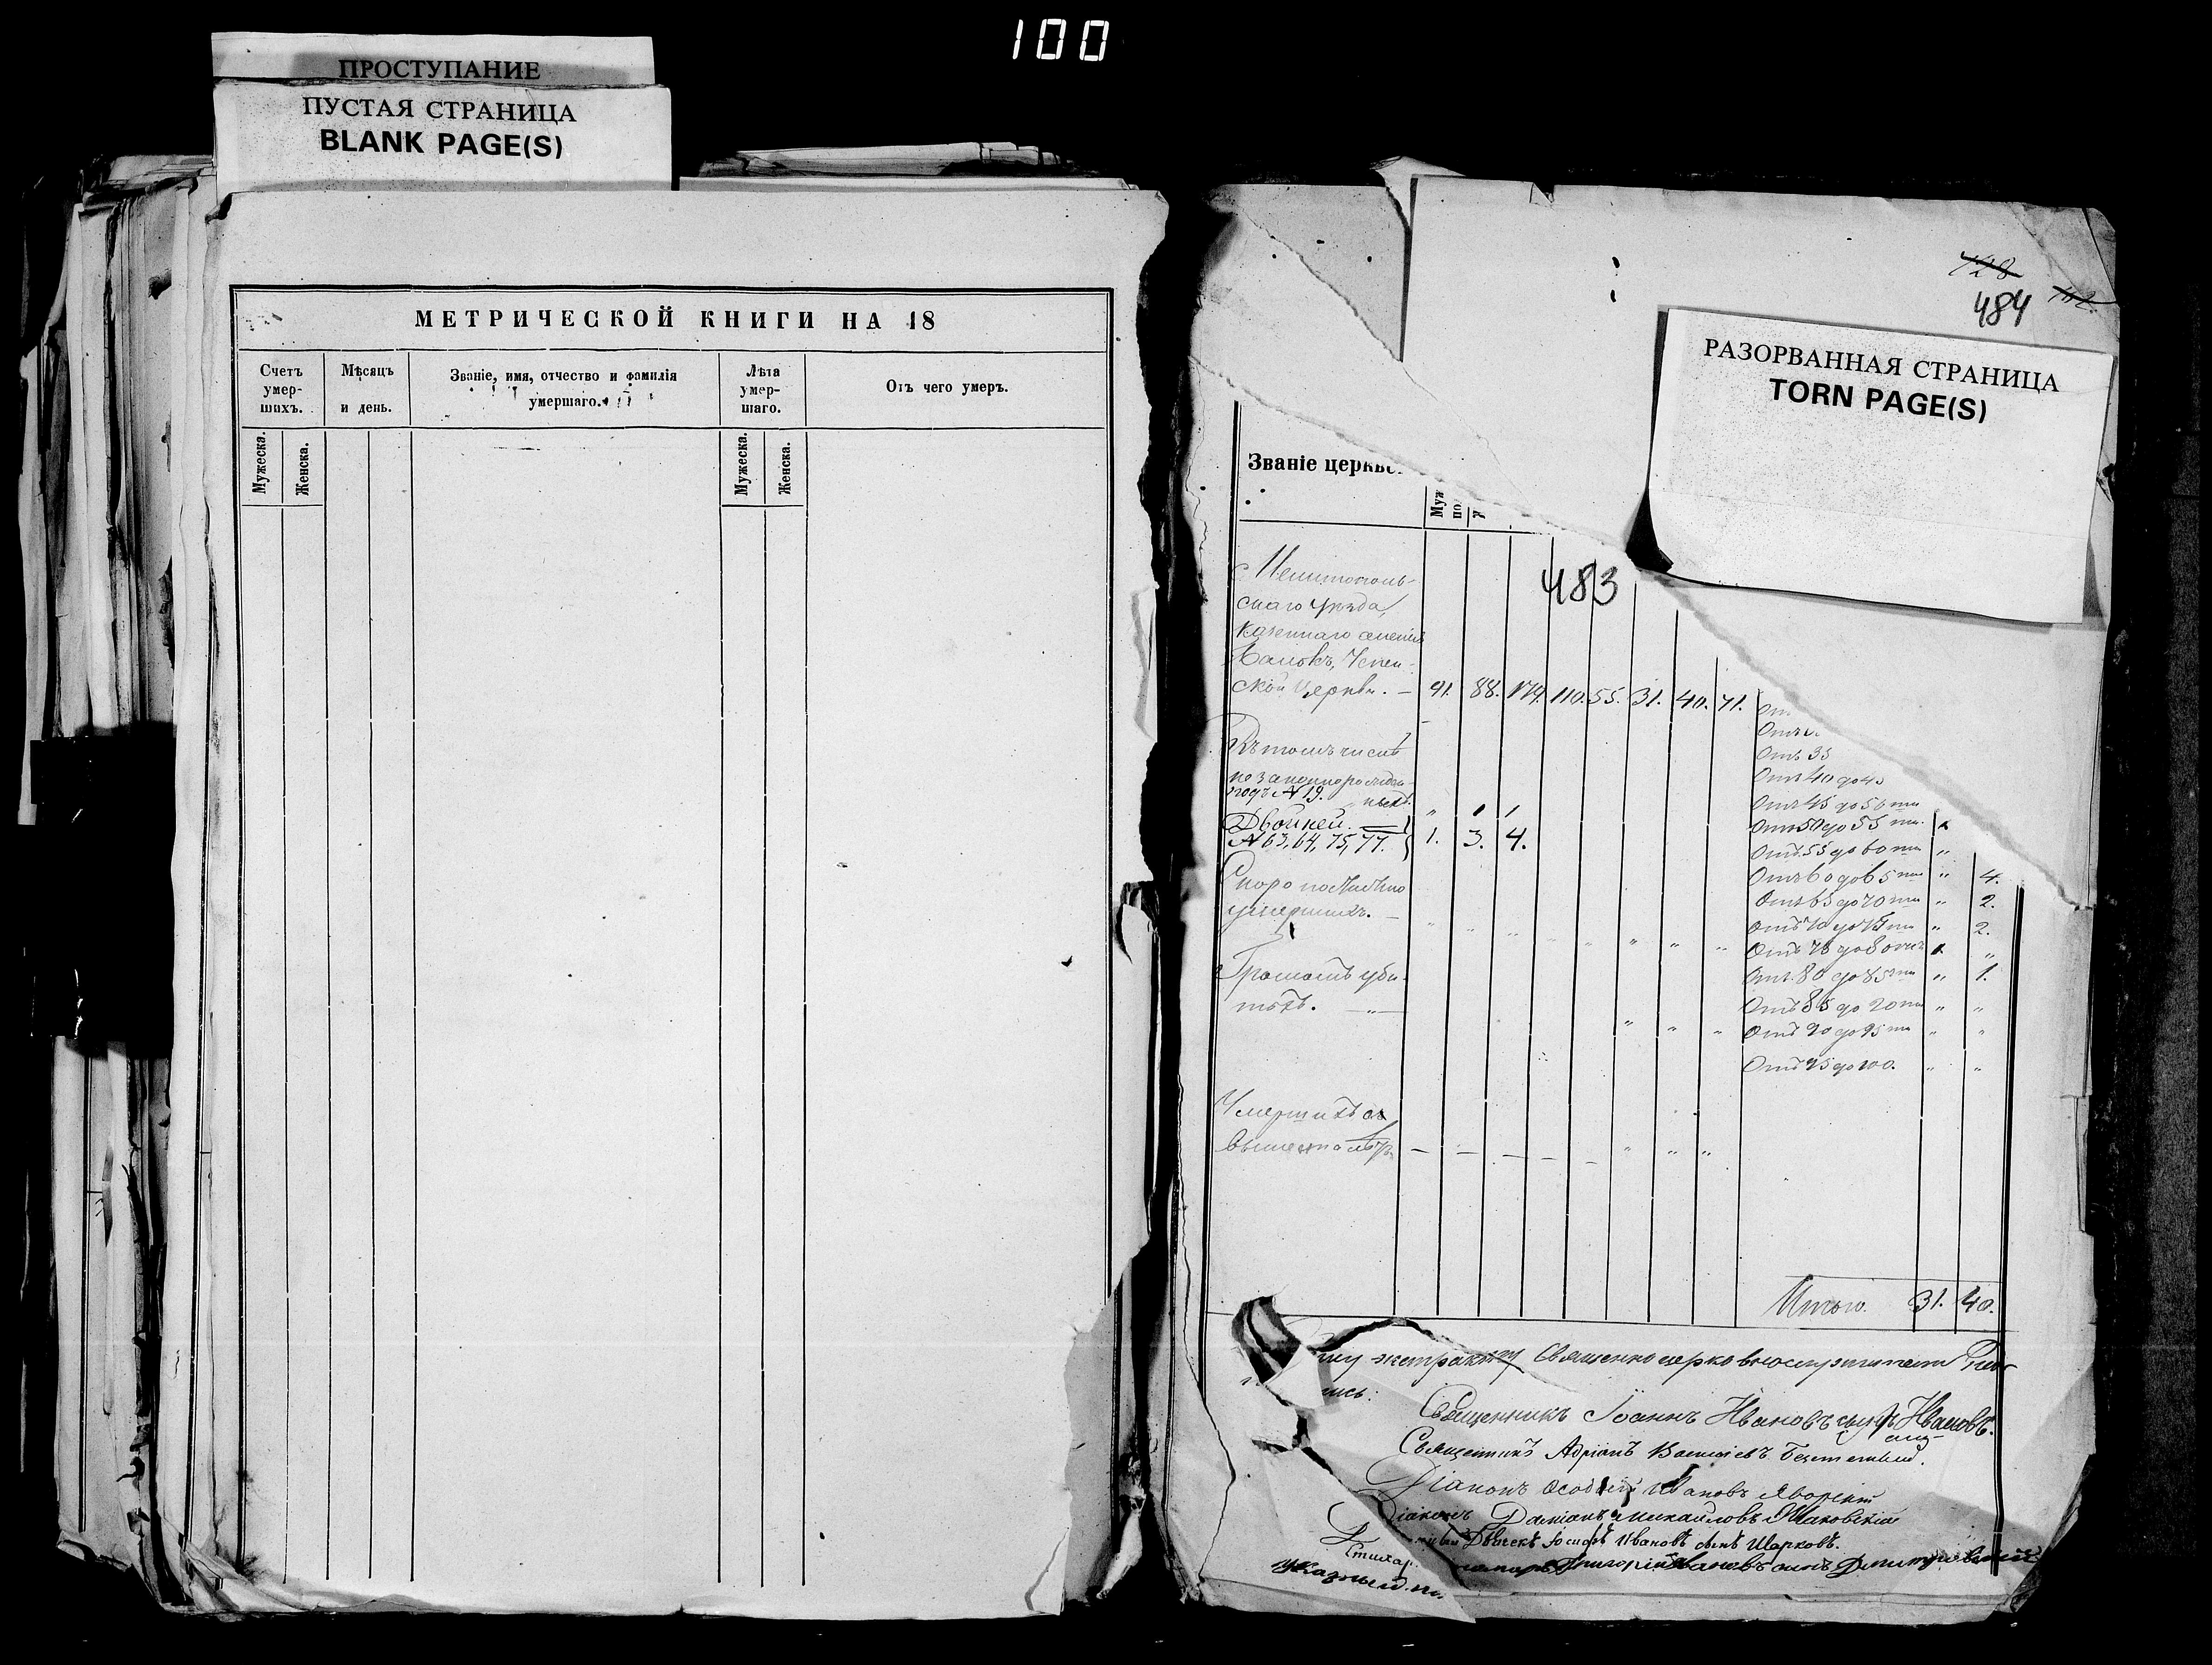 100
ПРОСТУПАНИЕ
ПУСТАЯ СТРАНИЦА
BLANK PAGE(S)
МЕТРИЧЕСКОЙ КНИГИ НА 18
Счетъ умер-шихъ.
Мѣсяцъ и день.
Званіе, имя, отчество и фамилія умершаго.
Лѣта умер-шаго.
Отъ чего умеръ.
Мужеска.
Женска.
Мужеска.
Женска.
128
484
РАЗОРВАННАЯ СТРАНИЦА
TORN PAGE(S)
Званіе церкв
Муж
по
483
Мелитополь-
скаго уѣзда,
казеннаго селенія
Успен-
ской церкви. — 91. 88. 179. 110. 55. 31. 40. 71.
Въ томъ числѣ
незаконнорожден-
подъ № 19. ныхъ. „ 1 1
Двойней.
№ 63, 64, 75, 77. 1. 3. 4.
Скоропостижно
умершихъ. —
Громомъ уби-
тыхъ.
Умершихъ
выше ста лѣтъ
Отъ 35
Отъ 40 до 45
Отъ 45 до 50 ти
Отъ 50 до 55 ти. 1
Отъ 55 до 60 ти „
Отъ 60 до 65 ти „ 4.
Отъ 65 до 70 ти „ 2.
Отъ 70 до 75 ти „ 2.
Отъ 75 до 80 ти 1. „
Отъ 80 до 85 ти „ 1.
Отъ 85 до 90 ти „ „
Отъ 90 до 95 ти „ „
Отъ 95 до 100. „ „
Итого. 31. 40.
му экстракту священноцерковнослужители
пись:
Священникъ Іоаннъ Ивановъ сынъ Ивановъ.
Священникъ Адріанъ Васильевъ
Діаконъ Ивановъ Яворскій
Діаконъ Даміанъ Михайловъ Маковскій
Дьячекъ Іосифъ Ивановъ сынъ Шарковъ.
Стихар
Указный
Григорій Ивановъ сынъ Дмитровскій